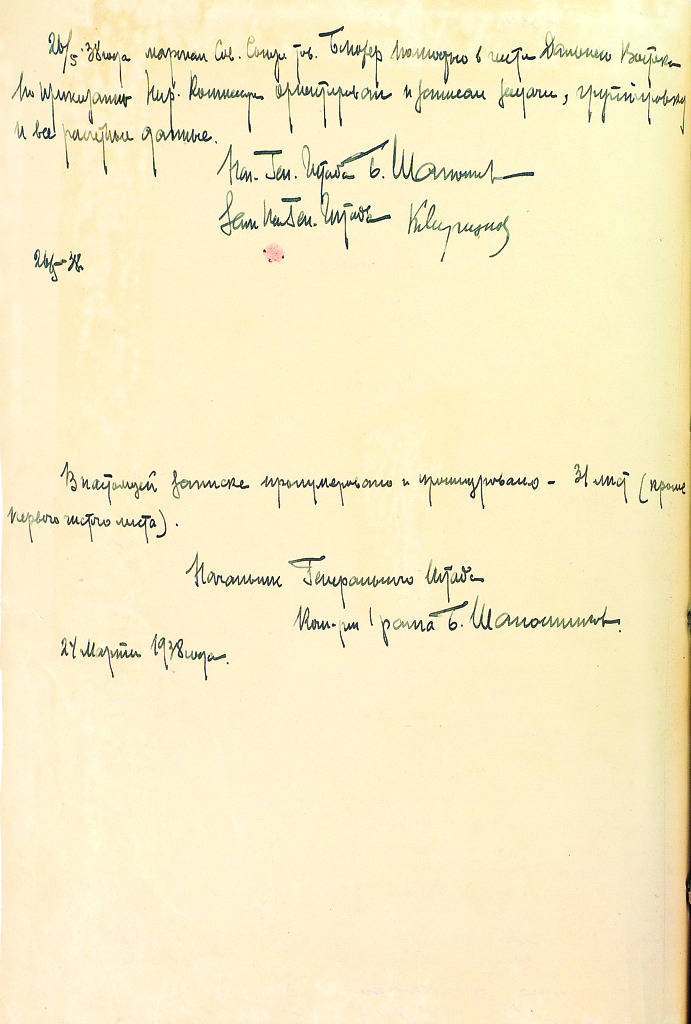 26/5·38 года маршал Сов. Союза тов. Блюхер полностью в части Дальнего Востока
по приказанию Нар. Комиссара ориентирован и записал задачи, группировку
и все расчетные данные.
Нач. Ген. Штаба Б. Шапошник
Зам Нач Ген. Штаба
26/5–38.
В настоящей записке пронумеровано и прошнуровано – 31 лист (кроме
первого чистого листа).
Начальник Генерального Штаба
Ком-рм 1 ранга Б. Шапошников.
24 Марта 1938 года.